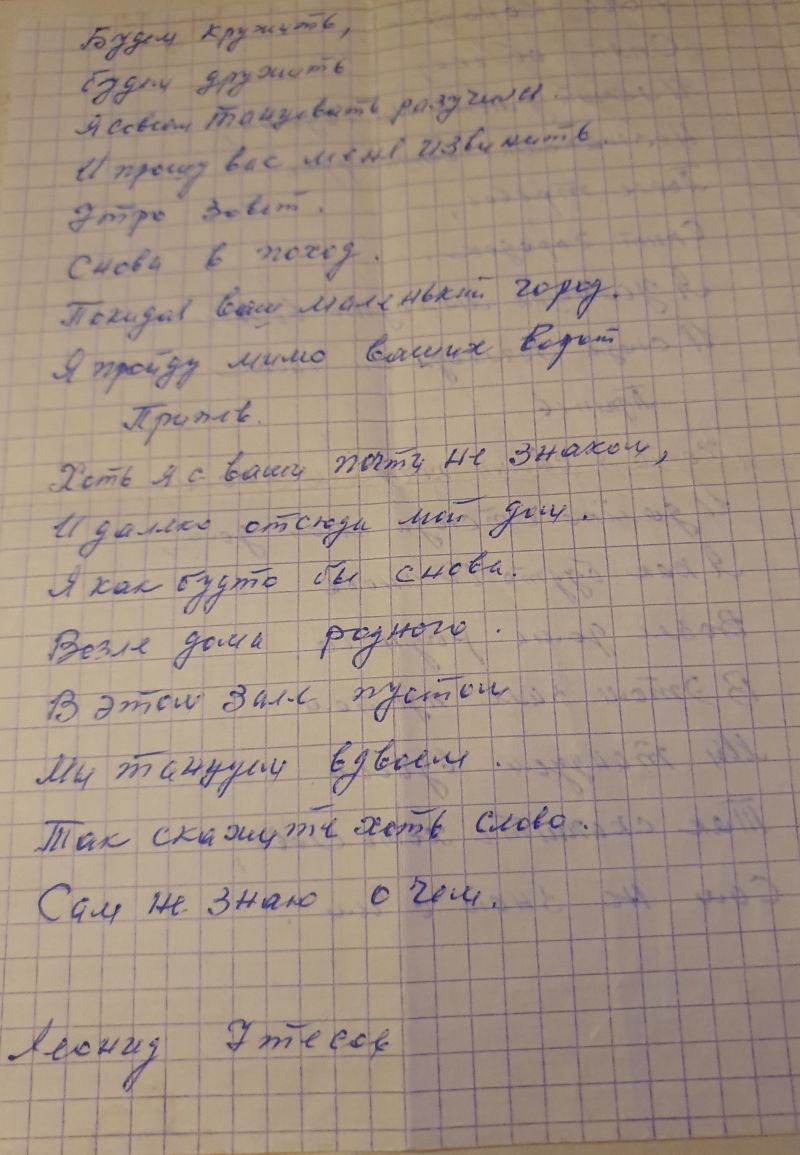 Будем кружить,
будем дружить
Я совсем танцевать разучился.
И прошу вас меня извинить.
Утро зовет.
Снова в поход.
Покидая ваш маленький город.
Я пройду мимо ваших ворот
Припев.
Хоть я с вами почти не знаком,
И далеко отсюда мой дом.
Я как будто бы снова.
Возле дома родного.
В этом зале пустом
Мы танцуем вдвоем.
Так скажите хоть слово.
Сам не знаю о чем.
Леонид Утесов